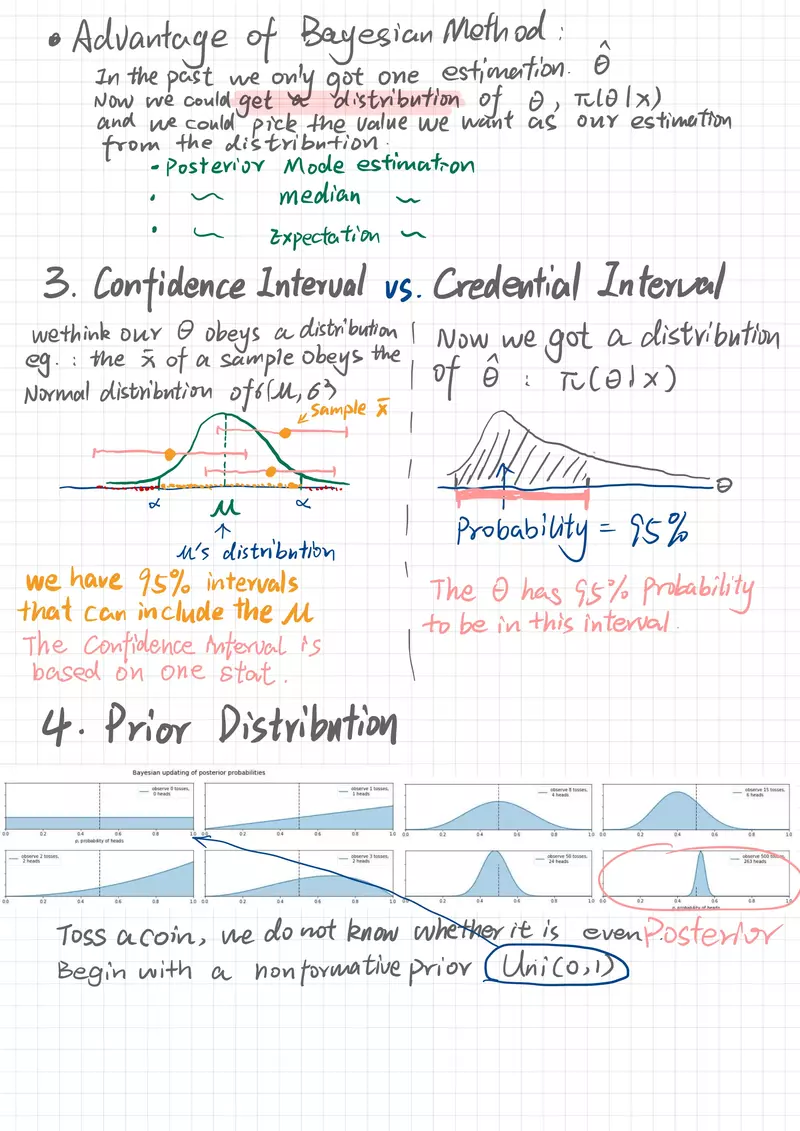 • Advantage of Bayesian Method:
In the past we only got one estimation. θ̂
Now we could get a distribution of θ, π(θ|x)
and we could pick the value we want as our estimation
from the distribution.
- Posterior Mode estimation
• ~ median ~
• ~ Expectation ~
3. Confidence Interval vs. Credential Interval
we think our θ obeys a distribution
eg.: the x̄ of a sample obeys the
Normal distribution of
sample x̄
α
α
μ
↑
μ's distribution
we have 95% intervals
that can include the μ
The Confidence Interval is
based on one stat.
Now we got a distribution
of θ̂ : π(θ|x)
θ
Probability = 95%
The θ has 95% probability
to be in this interval.
4. Prior Distribution
Bayesian updating of posterior probabilities
observe 0 tosses,
0 heads
0.0 0.2 0.4 0.6 0.8 1.0
p, probability of heads
observe 1 tosses,
1 heads
0.0 0.2 0.4 0.6 0.8 1.0
observe 8 tosses,
4 heads
0.0 0.2 0.4 0.6 0.8 1.0
observe 15 tosses,
6 heads
0.0 0.2 0.4 0.6 0.8 1.0
observe 2 tosses,
2 heads
0.0 0.2 0.4 0.6 0.8 1.0
observe 3 tosses,
2 heads
0.0 0.2 0.4 0.6 0.8 1.0
observe 50 tosses,
24 heads
0.0 0.2 0.4 0.6 0.8 1.0
observe 500 tosses,
263 heads
0.0 0.2 0.4 0.6 0.8 1.0
p, probability of heads
Toss a coin, we do not know whether it is even Posterior
Begin with a nonformative prior Uni(0,1)